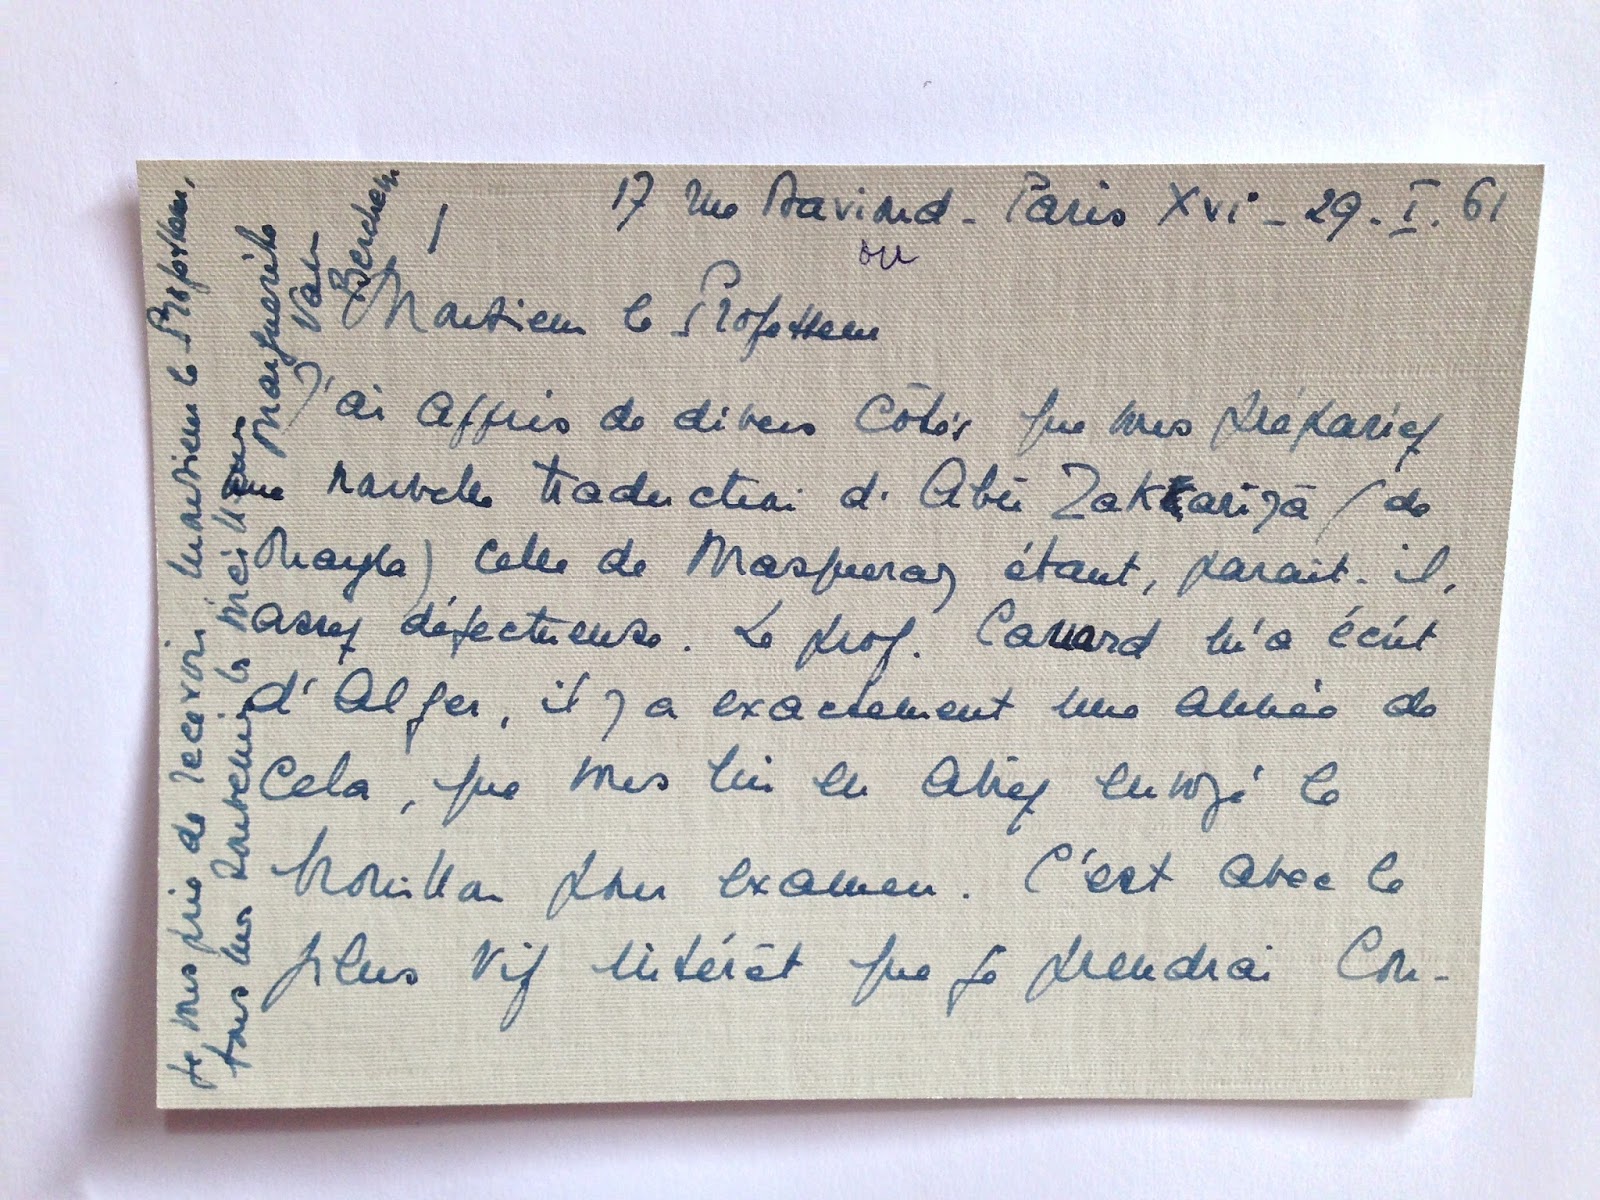 17 rue Davioud - Paris XVI - 29 - I. 61
ou
Monsieur le Professeur
J'ai appris de divers côtés que vous prépariez
une nouvelle traduction d'Abū Zakariyā (de
Ouargla) celle de Masqueray étant, parait-il,
assez défectueuse. Le prof. Canard m'a écrit
d'Alger, il y a exactement une année de
cela, que vous lui en aviez envoyé le
brouillon pour examen. C'est avec le
plus vif intérêt que je prendrai con-
Je vous prie de recevoir, Monsieur le Professeur,
tous mes souvenirs les meilleurs
Marguerite
van
Berchem